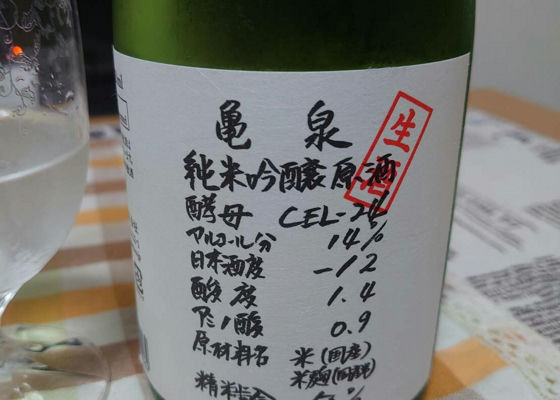 亀 泉
純米吟醸原酒
生酒
酵母 CEL-24
アルコール分 14%
日本酒度 -12
酸度 1.4
アミノ酸 0.9
原材料名 米(国産)
米麹(国産米)
精米歩合